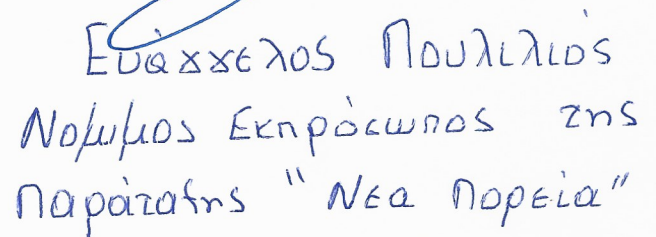 Ευάγγελος Πουλιλιός
Νομυμος Εκπρόσωπος της
παράταξης "Νεα πορεία"